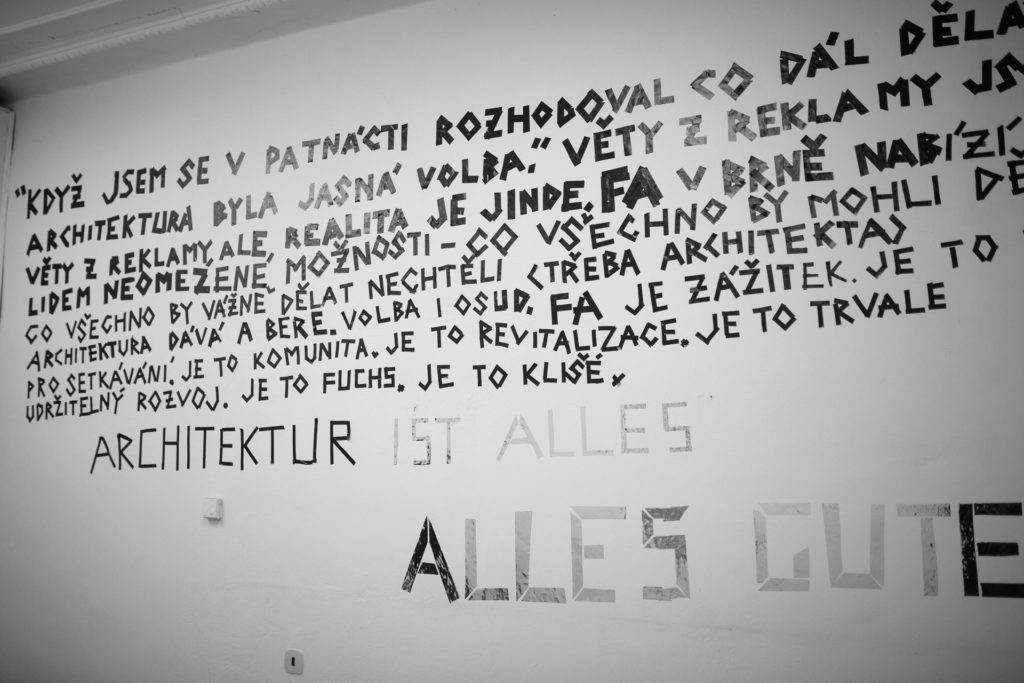 "KDYŽ JSEM SE V PATNÁCTI ROZHODOVAL CO DÁL DĚLA
ARCHITEKTURA BYLA JASNÁ VOLBA." VĚTY Z REKLAMY JS
VĚTY Z REKLAMY, ALE REALITA JE JINDE. FA V BRNĚ NABÍZÍ
LIDEM NEOMEZENÉ MOŽNOSTI - CO VŠECHNO BY MOHLI DĚ
CO VŠECHNO BY VÁŽNĚ DĚLAT NECHTĚLI (TŘEBA ARCHITEKTA)
ARCHITEKTURA DÁVÁ A BERE. VOLBA I OSUD. FA JE ZÁŽITEK. JE TO
PRO SETKÁVÁNÍ. JE TO KOMUNITA. JE TO REVITALIZACE. JE TO TRVALE
UDRŽITELNÝ ROZVOJ. JE TO FUCHS. JE TO KLIŠÉ.
ARCHITEKTUR IST ALLES
ALLES GUTE